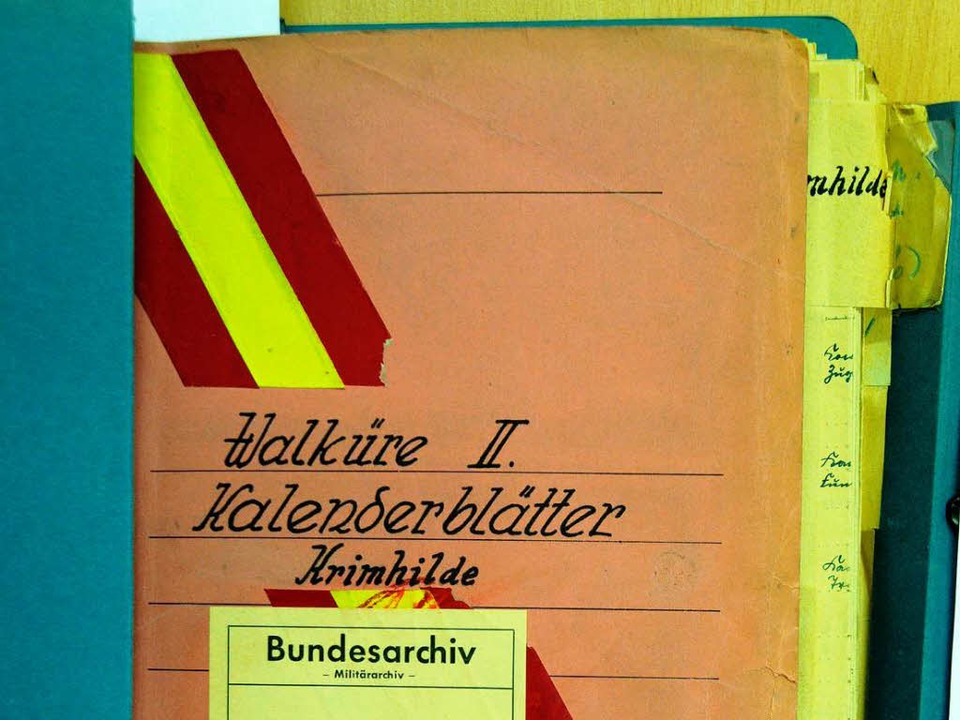 Walküre II.
Kalenderblätter
Krimhilde
Bundesarchiv
– Militärarchiv –
mhilde
Zug